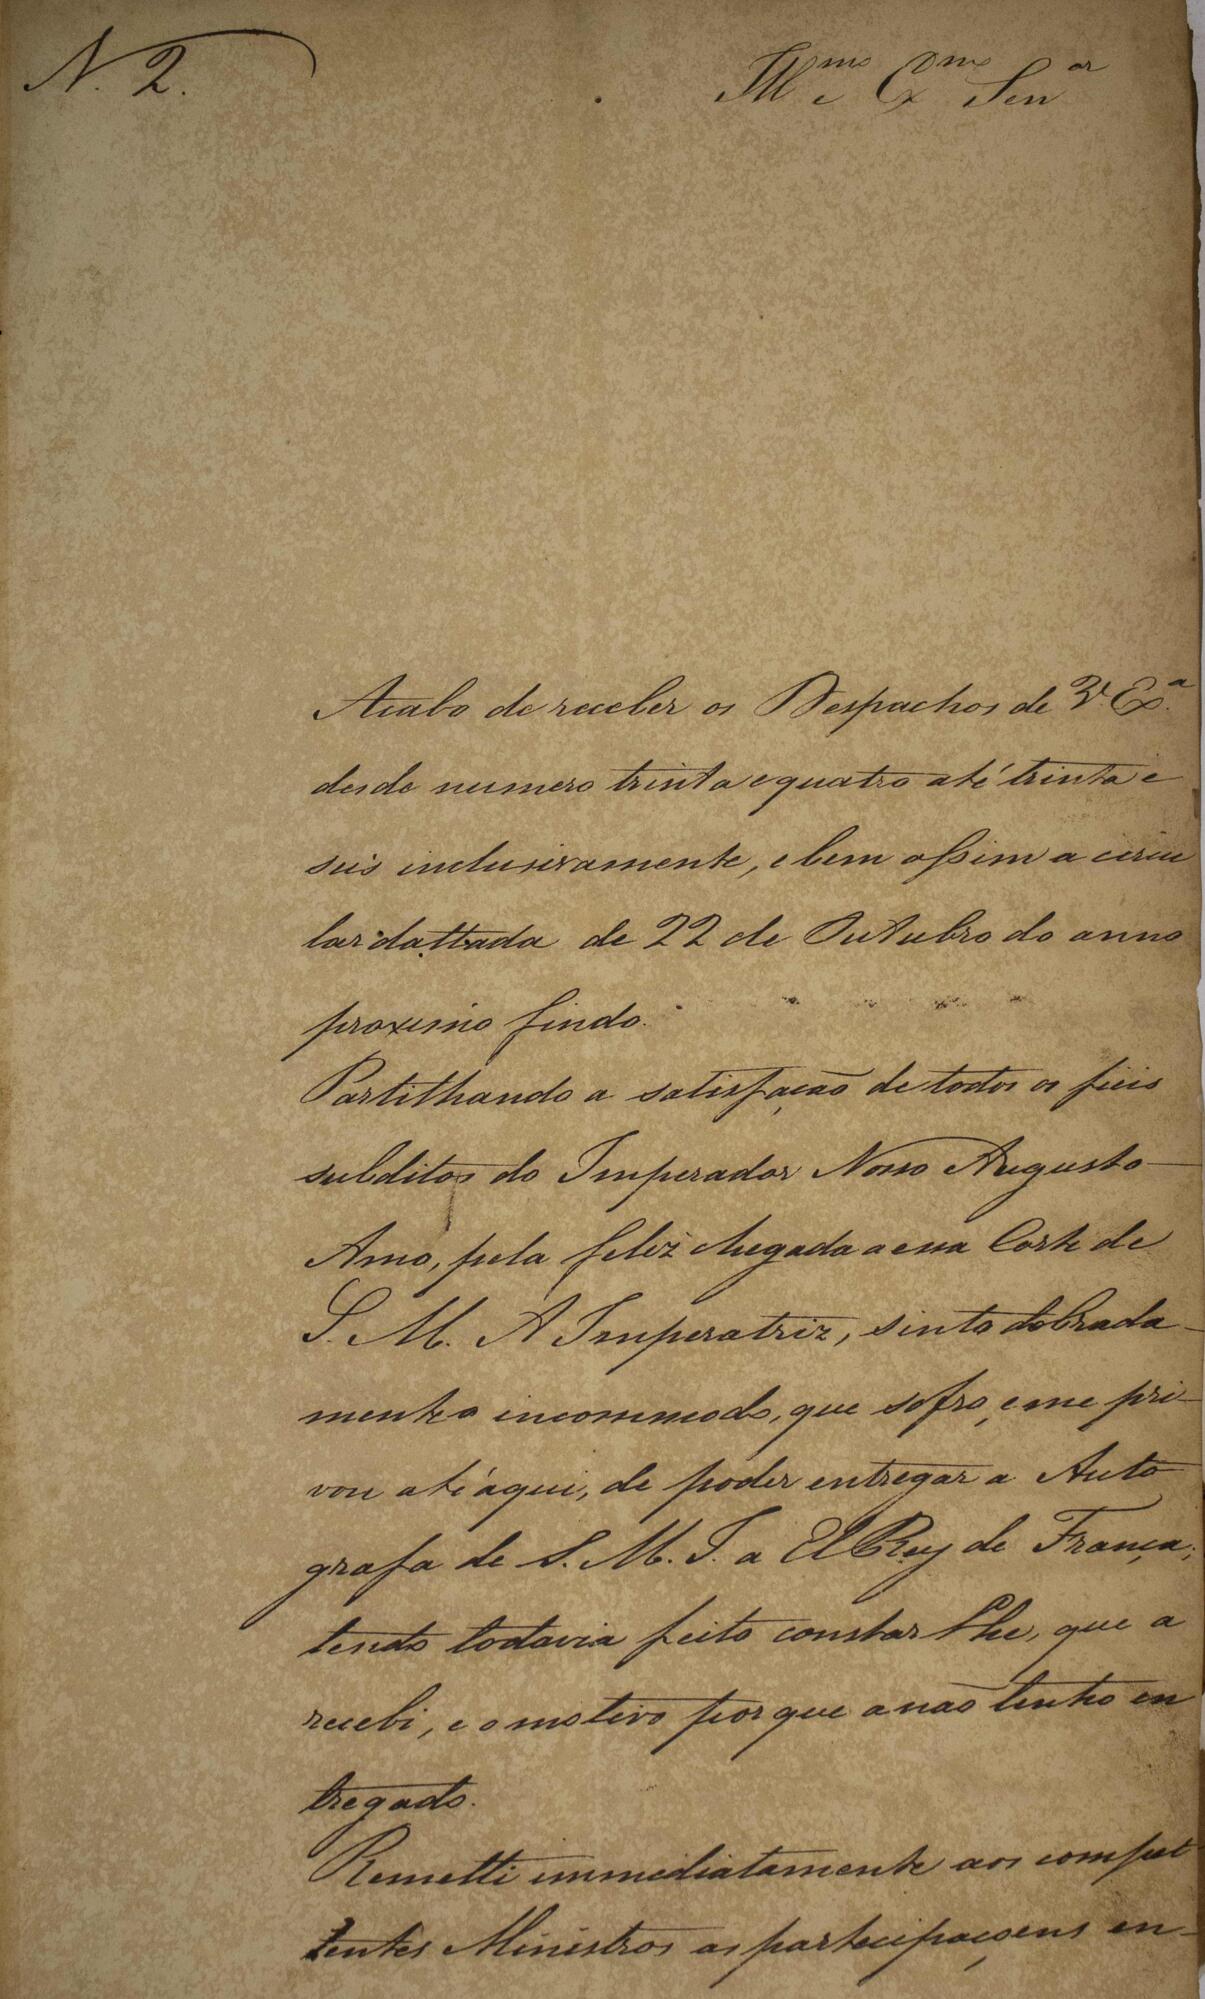 N. 2.
Ill.mo e Ex.mo Sen.or
Acabo de receber os Despachos de V. Ex.a
desde numero trinta e quatro até trinta e
seis inclusivamente, e bem assim a circu
lar dattada de 22 de Outubro do anno
proximo findo.
Partilhando a satisfação de todos os fieis
subditos do Imperador Nosso Augusto
Amo, pela feliz chegada a essa Corte de
S. M. A Imperatriz, sinto dobrada-
mente o incommodo, que sofro, e me pri-
vou até áqui, de poder entregar a Auto
grafa de S. M. I. a El Rey de França;
tendo todavia feito constar lhe, que a
recebi, e o motivo porque a não tenho en
tregado.
Remetti immediatamente aos compet
tentes Ministros as partecipaçoens en-